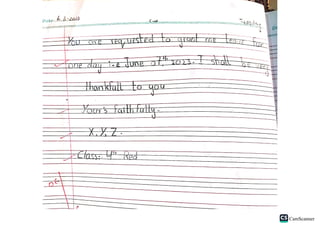 You are requested to grant me leave for
one day i-e June 07th 2023. I shall be very
thankfull to you
Your's faithfully.
X.Y.Z.
Class: 4th Red
CS CamScanner